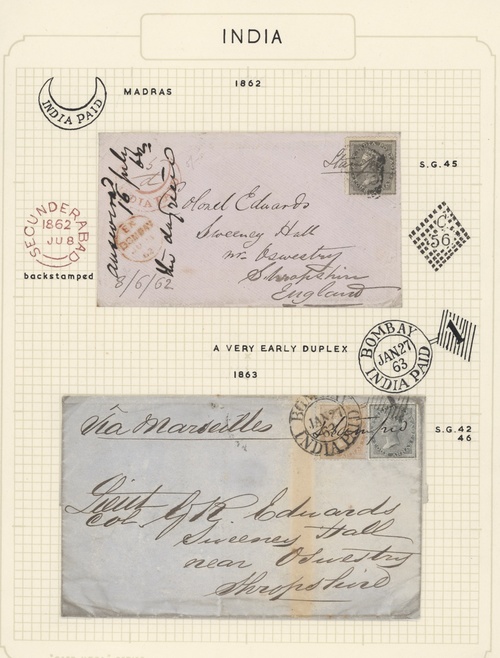 INDIA
INDIA PAID
MADRAS
1862
S.G. 45
SECUNDERABAD
1862
JU 8
backstamped
C
56
answered
the day
8/6/62
INDIA
BOMBAY
Colonel Edwards
Sweeney Hall
nr Oswestry
Shropshire
England
A VERY EARLY DUPLEX
1863
BOMBAY
JAN 27
63
INDIA PAID
1
S.G. 42
46
Via Marseilles
JAN 27
63
INDIA PAID
Lieut
Col G R Edwards
Sweeney Hall
near Oswestry
Shropshire